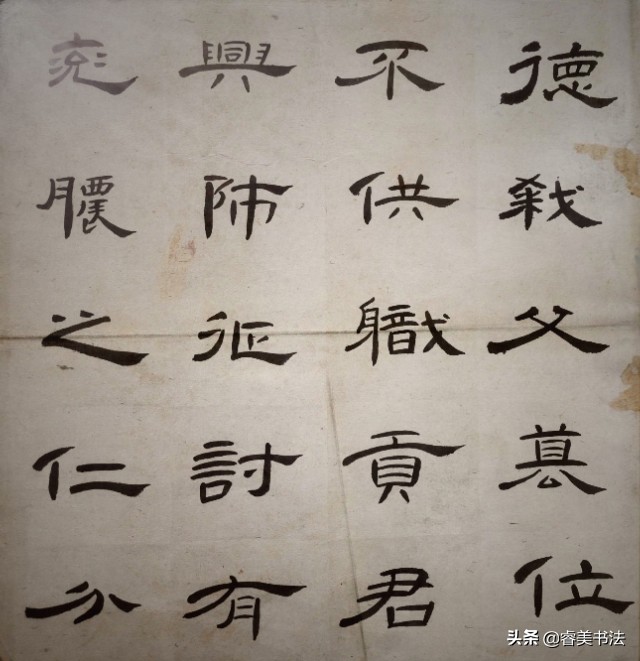 德弑父篡位
不供職貢君
興師征討有
兖膿之仁分
头条 @睿美书法